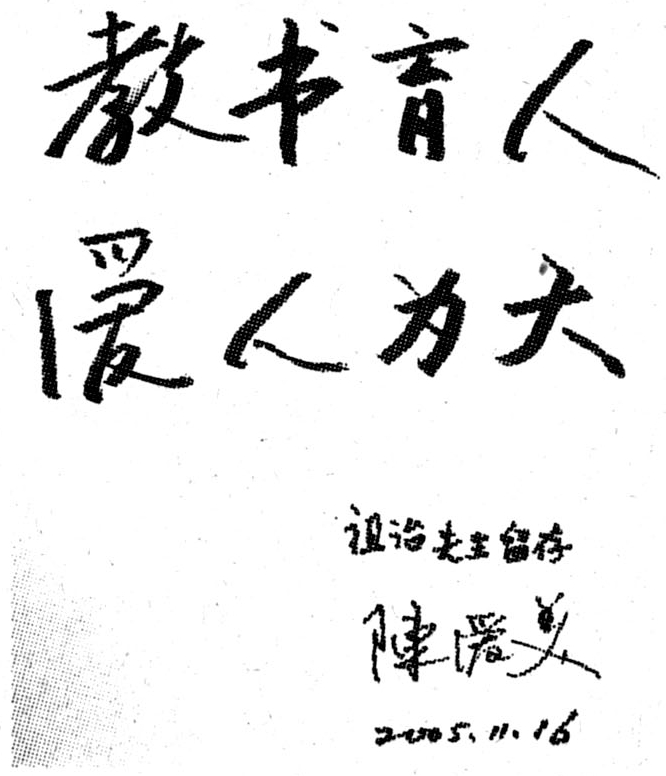 教书育人
爱人为大
祖治先生留存
陳爱美
2005.11.16